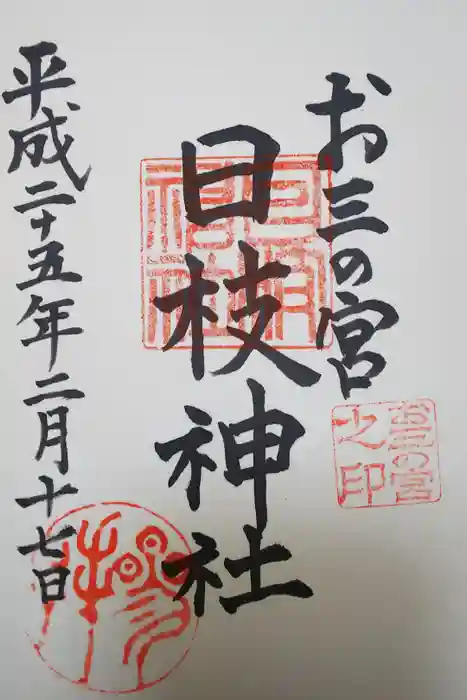 お三の宮
日枝神社
平成二十五年二月十七日
日枝神社
お三の宮之印